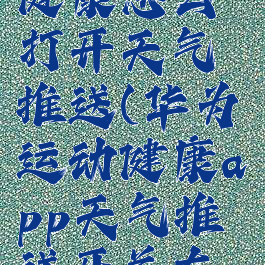 健康怎么
打开天气
推送(华为
运动健康a
pp天气推
送开关在